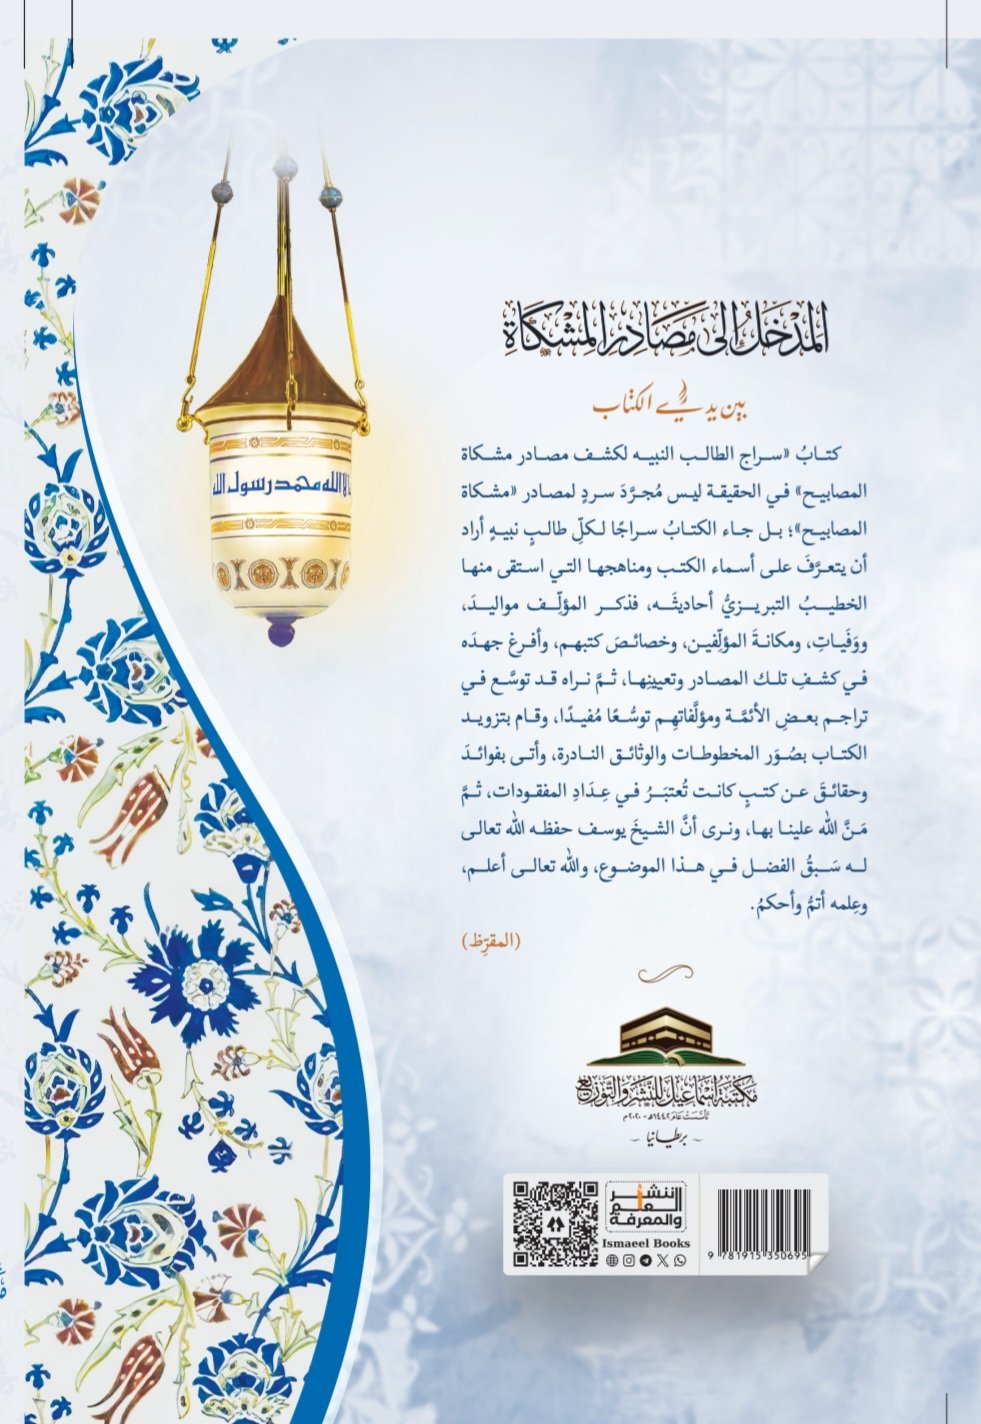 المَدْخَلُ إلى مَصَادِرِ المِشْكَاةِ
بين يدي الكتاب
كتـابُ «سـراج الطالـب النبيـه لكشـف مصـادر مشـكاة
المصابيح» في الحقيقة ليس مُجرَّدَ سردٍ لمصادر «مشكاة
المصابيـح»؛ بـل جـاء الكتـابُ سـراجًا لـكلِّ طالـبٍ نبيـهٍ أراد
أن يتعـرَّفَ علـى أسـماء الكتـب ومناهجهـا التـي اسـتقى منهـا
الخطيـبُ التبريـزيُّ أحاديثَـه، فذكـر المؤلّـف مواليـدَ،
ووَفَيـاتِ، ومكانـةَ المؤلِّفيـن، وخصائـصَ كتبهـم، وأفـرغ جهـدَه
فـي كشـفِ تلـك المصـادر وتعيينِهـا، ثـمَّ نـراه قـد توسَّـع فـي
تراجـم بعـضِ الأئمَّـة ومؤلَّفاتهِـم توسُّـعًا مُفيـدًا، وقـام بتزويـد
الكتـاب بصُـوَر المخطوطـات والوثائـق النـادرة، وأتـى بفوائـدَ
وحقائـقَ عـن كتـبٍ كانـت تُعتبَـرُ فـي عِـدَادِ المفقـودات، ثـمَّ
مَـنَّ الله علينـا بهـا، ونـرى أنَّ الشـيخَ يوسـف حفظـه الله تعالـى
لـه سَـبقُ الفضـل فـي هـذا الموضـوع، والله تعالـى أعلـم،
وعِلمه أتمُّ وأحكمُ.
(المقرّظ)
لا الله محمد رسول الله
مكتبة إسماعيل للنشر والتوزيع
تأسست عام ١٤٤٢هـ - ٢٠٢٠م
- بريطانيا -
لننشر
العلم
والمعرفة
Ismaeel Books
9 781915 350695